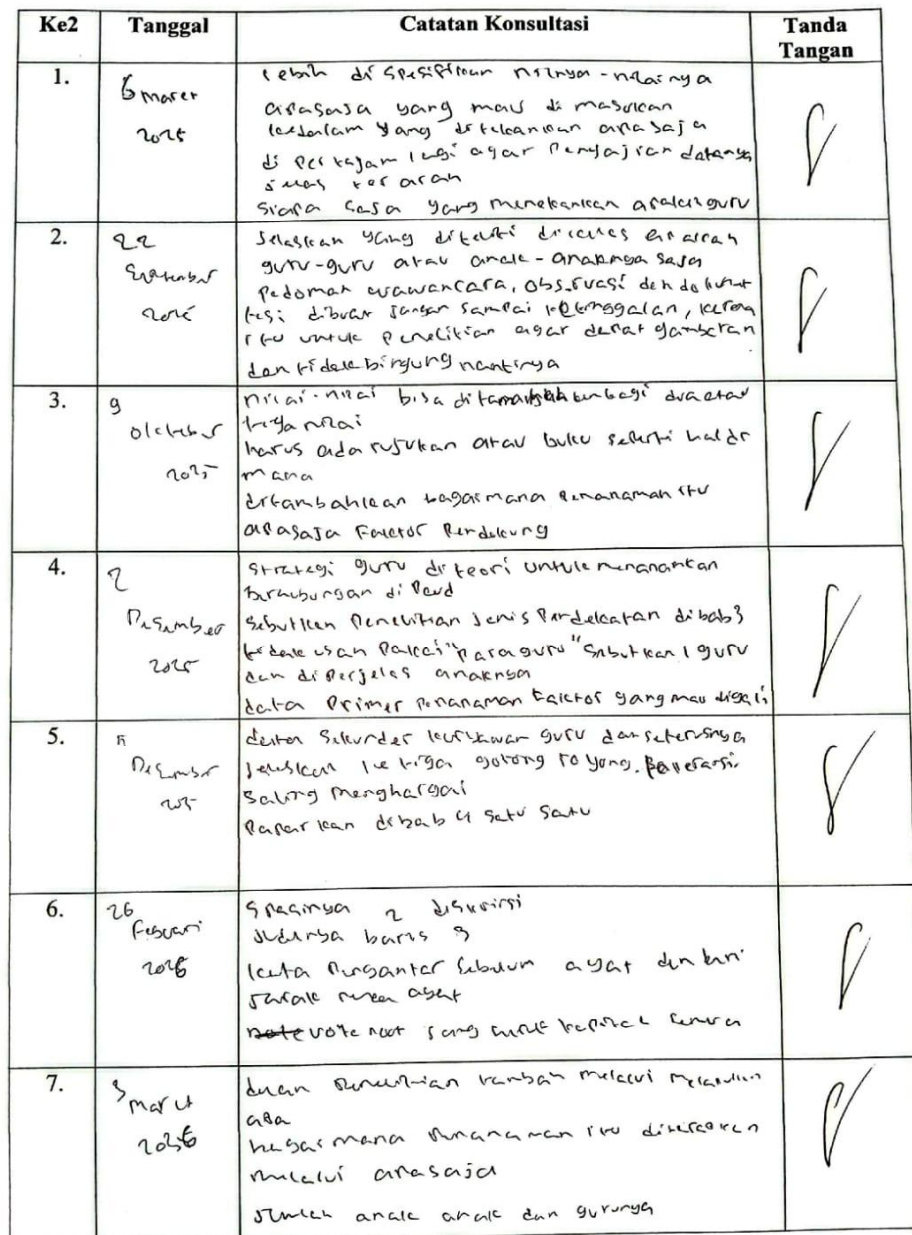 Ke2 Tanggal Catatan Konsultasi Tanda Tangan
1. 6 maret 2025
lebih di spesifikkan nilainya - nilainya
apasaja yang mau di masukan
kedalam yang di tekankan apa saja
di pertajam lagi agar Penyajian datanya
terarah
siapa saja yang menekankan apakah guru
2. 22 2025
Jelaskan yang diteliti
guru-guru atau anak-anaknya saja
Pedoman wawancara, observasi dan dokument
tasi dibuat jangan sampai ketinggalan, karena
itu untuk Penelitian agar dapat gambaran
dan tidak bingung nantinya
3. 9 Oktober 2025
nilai-nilai bisa di bagi dua atau
tiga nilai
harus ada rujukan atau buku seperti hal di
mana
ditambahkan bagaimana Penanaman itu
apasaja Faktor Pendukung
4. 2 Desember 2025
Strategi guru di teori untuk menanamkan
di Paud
Sebutkan Penelitian Jenis Pendekatan dibab3
tidak usah Pakai "Para guru" Sebutkan 1 guru
dan di Perjelas anaknya
data Primer Penanaman Faktor yang mau digali
5. Desember
data Sekunder guru dan seterusnya
Jelaskan ketiga gotong royong.
Saling menghargai
Paparkan dibab 4 satu satu
6. 26 Febuari 2026
Spasinya 2
Judulnya baris
kata Pengantar Sebelum ayat
7. 3 maret 2026
melalui
apa
bagaimana Penanaman itu
melalui apasaja
anak anak dan gurunya